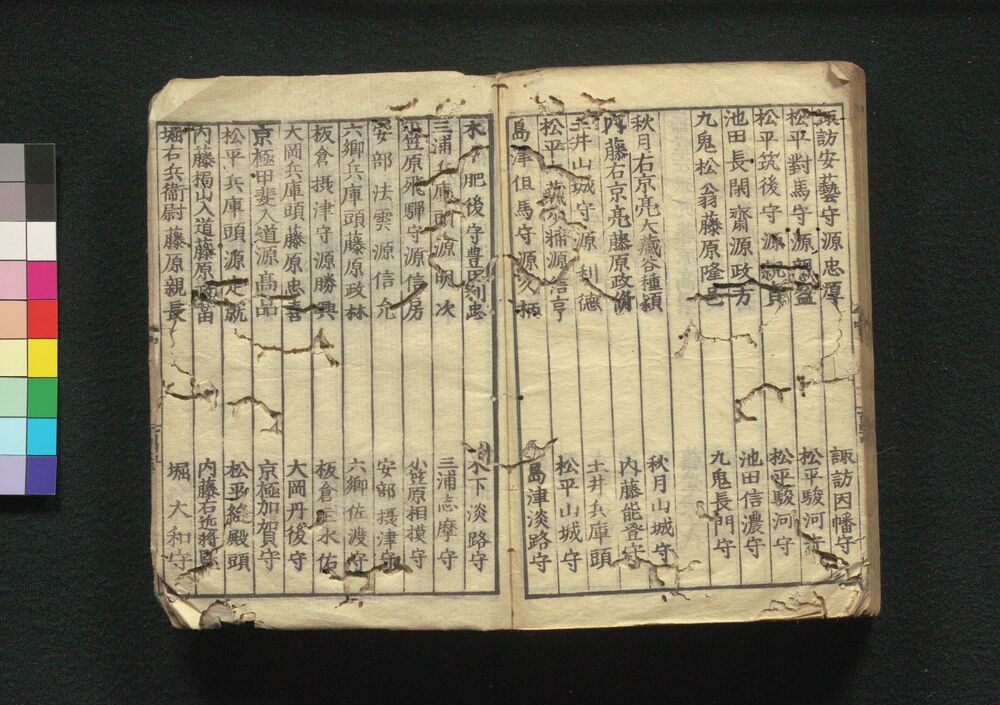 諏訪安藝守源忠厚　諏訪因幡守
松平對馬守源親盈　松平駿河守
松平筑後守源親貞　松平駿河守
池田長閑齋源政方　池田信濃守
九鬼松翁藤原隆邑　九鬼長門守
秋月右京亮大藏谷種穎　秋月山城守
内藤右京亮藤原政脩　内藤能登守
土井山城守源利德　土井兵庫頭
松平輔源信亨　松平山城守
島津但馬守源久柄　島津淡路守
木下肥後守豊臣利忠　木下淡路守
三浦兵庫頭源明次　三浦志摩守
小笠原飛驒守源信房　小笠原相摸守
安部法雲源信允　安部摂津守
六郷兵庫頭藤原政林　六郷佐渡守
板倉摂津守源勝興　板倉主水佑
大岡兵庫頭藤原忠喜　大岡丹後守
京極甲斐入道源髙品　京極加賀守
松平兵庫頭源定就　松平縫殿頭
内藤揭山入道藤原　内藤右近將監
堀右兵衞尉藤原親長　堀大和守